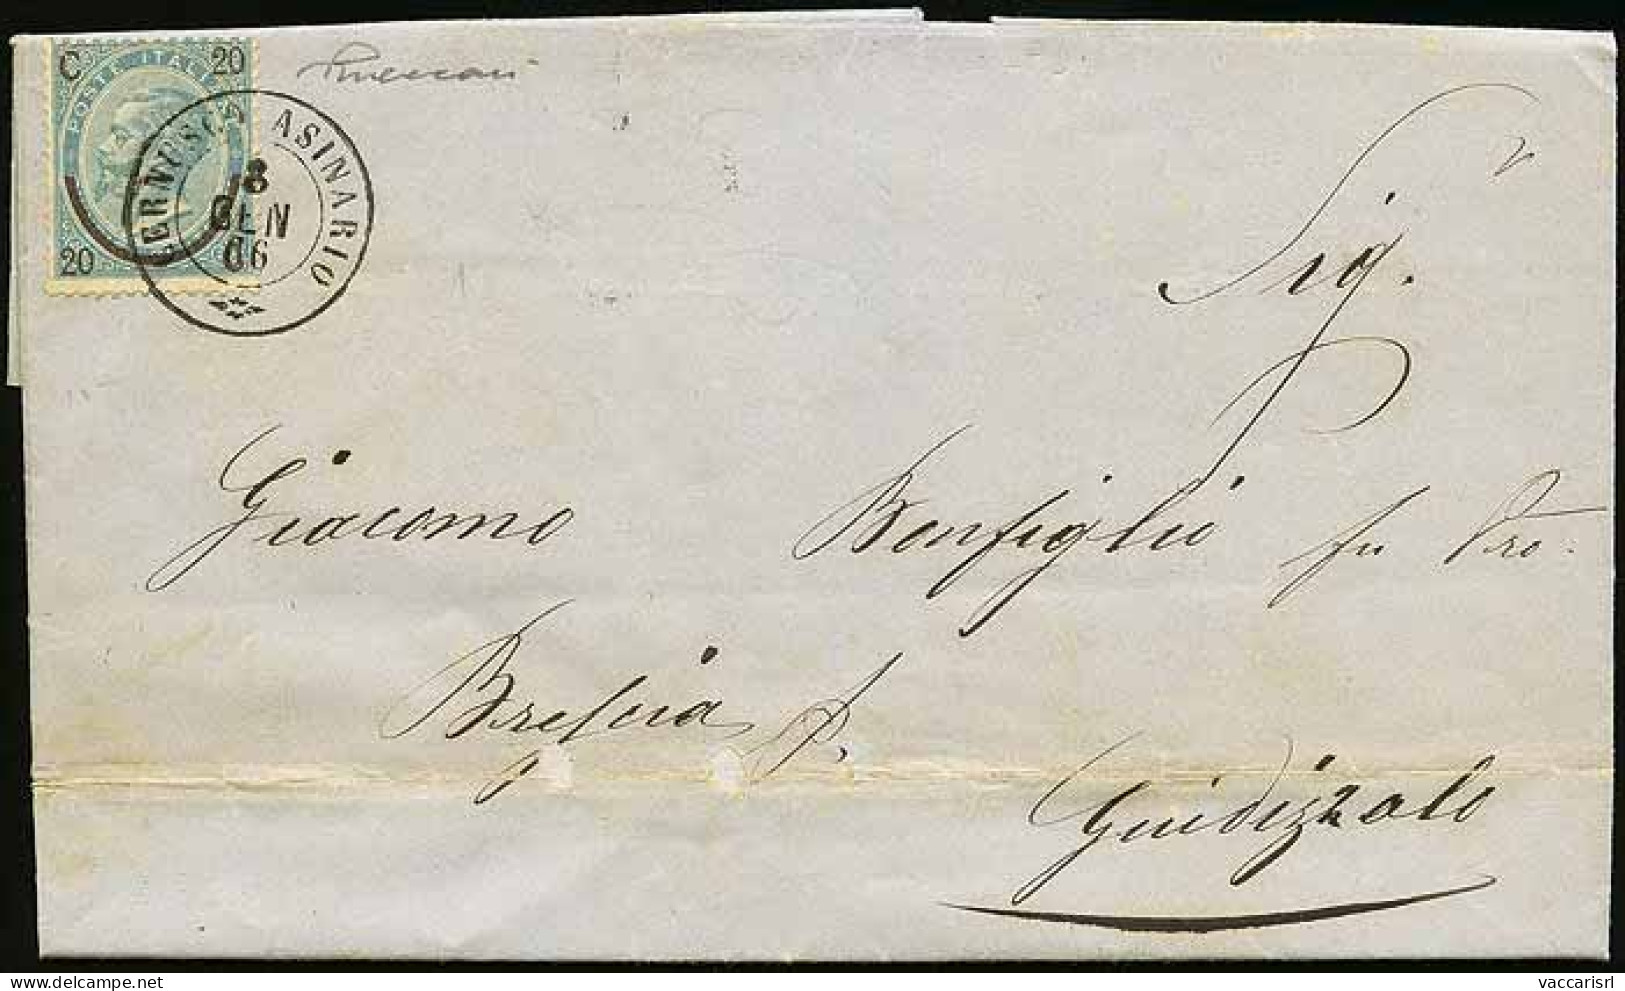 C 20
POSTE ITALIANE
20
CERNUSCO ASINARIO
8
GEN
66
Sig.
Giacomo Bonfiglio fu Pro.
Brescia p.
Guidizzolo
vaccarisrl